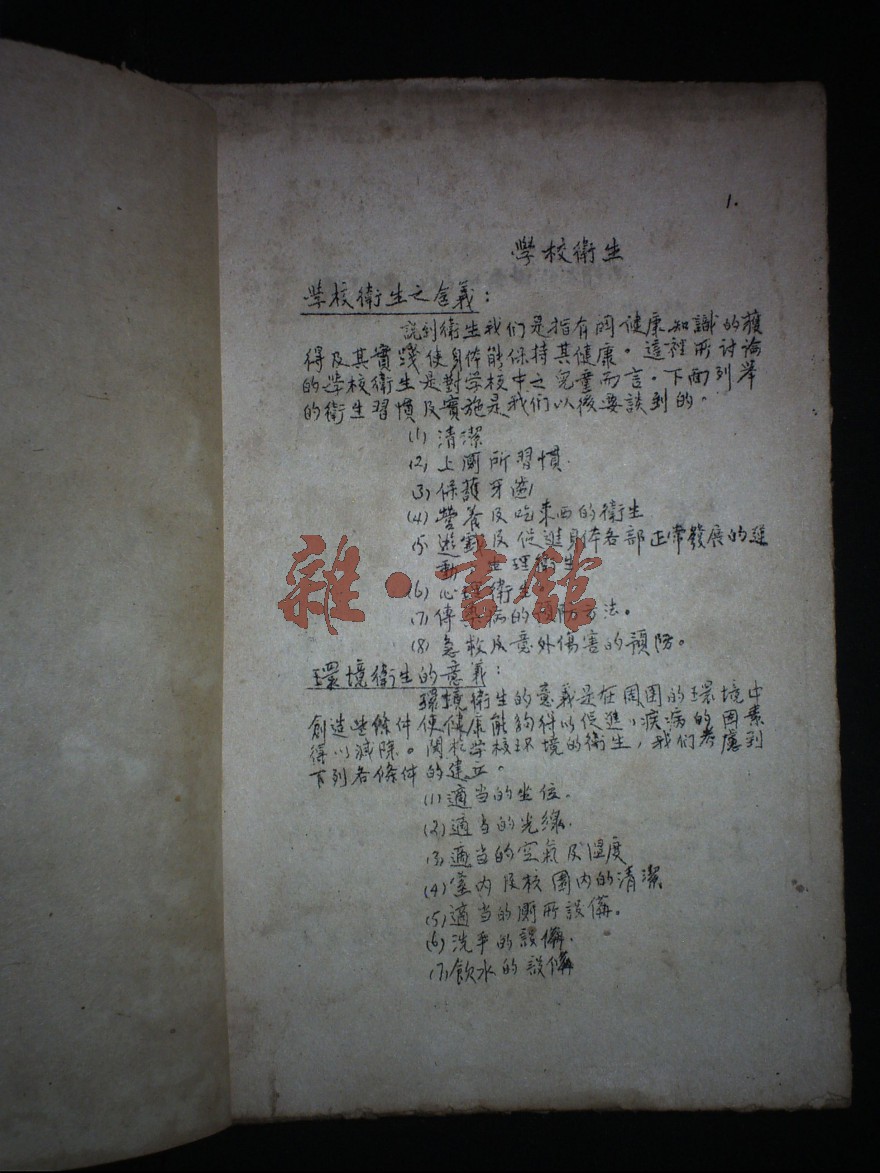 1.
學校衛生
學校衛生之含義：
說到衛生我们是指有関健康知識的獲
得及其實踐使身体能保持其健康。這裡所讨論
的学校衛生是對学校中之児童而言。下面列举
的衛生習慣及實施是我们以後要談到的。
(1) 清潔
(2) 上厠所習慣.
(3) 保護牙齒
(4) 營養及吃东西的衛生
(5) 遊戲及促進身体各部正常發展的運
動 生理衛生
(6) 心理衛生
(7) 傳染病的預防方法。
(8) 急救及意外傷害的預防。
環境衛生的意義：
環境衛生的意義是在周围的环境中
創造些條件使健康能夠得以促進，疾病的因素
得以減除。関於学校环境的衛生，我们考慮到
下列各條件的建立。
(1) 適当的坐位.
(2) 適当的光線.
(3) 適当的空氣及温度
(4) 室内及校園内的清潔
(5) 適当的厠所設備。
(6) 洗手的設備.
(7) 飲水的設備
雜·書館